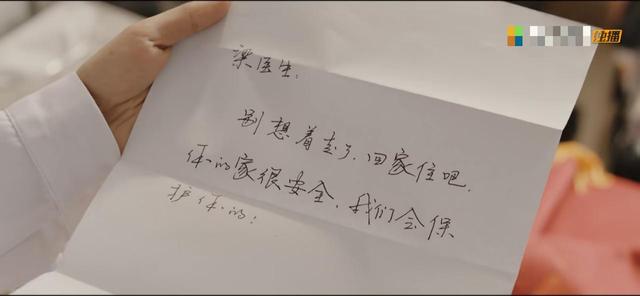 梁医生,
别想着走了,回家住吧.
你的家很安全,我们会保
护你的!
独播